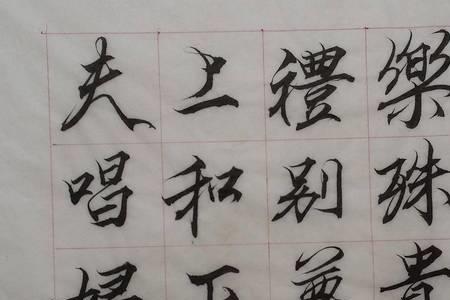 樂殊貴
禮别尊
上和下
夫唱婦